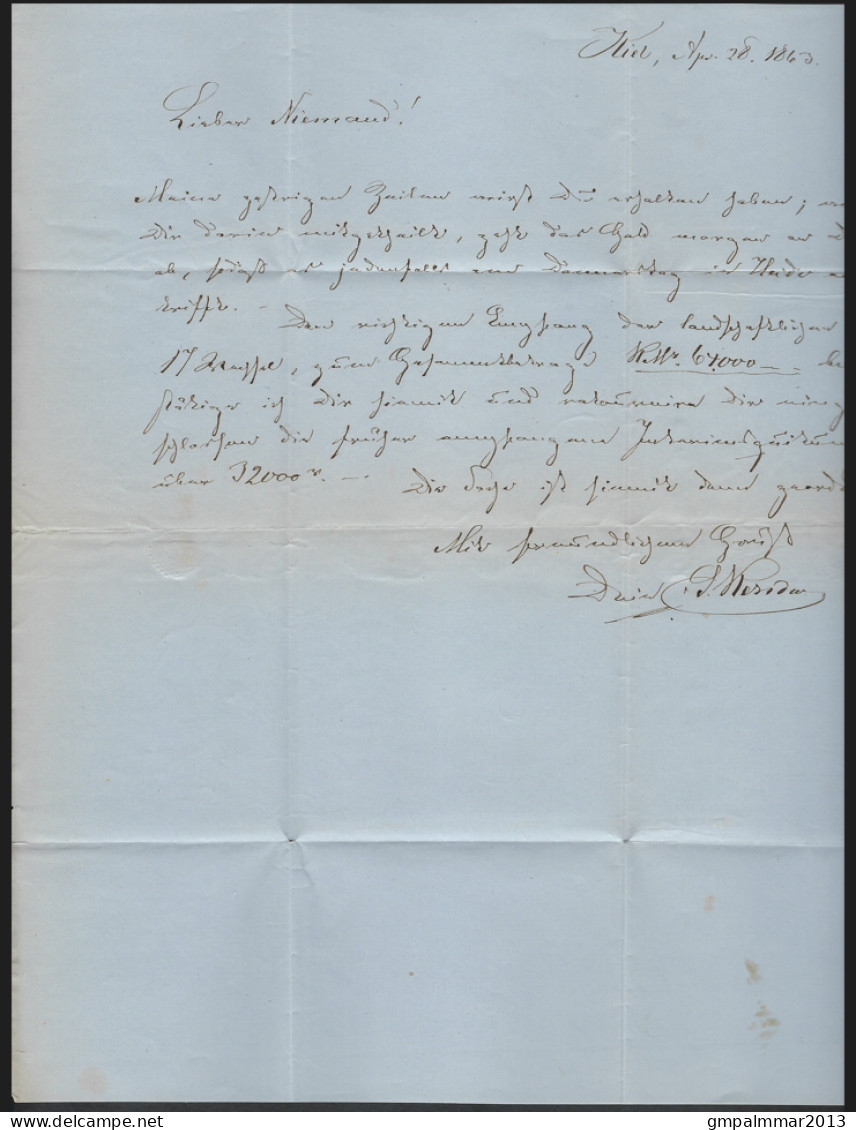 Kiel, Apr. 28. 1863.
Lieber Niemand!
Meine gestrigen Zeilen wirst Du erhalten haben; w
Dir darin mitgetheilt, geht das Geld morgen an
ab, so daß es jedenfalls am Donnerstag in Heide
trifft. –
Den richtigen Empfang der landschaftlichen
17 Wechsel, zum Gesammtbetrage RMr. 64000 – be
stätige ich Dir hiemit und retournire Dir einge
schlossen die früher empfangene Interimsquitun
über 32000 r. –
Die Sache ist hiemit dann geord
Mit freundlichem Gruß
Dein
delcampe.net
gmpalmmar2013